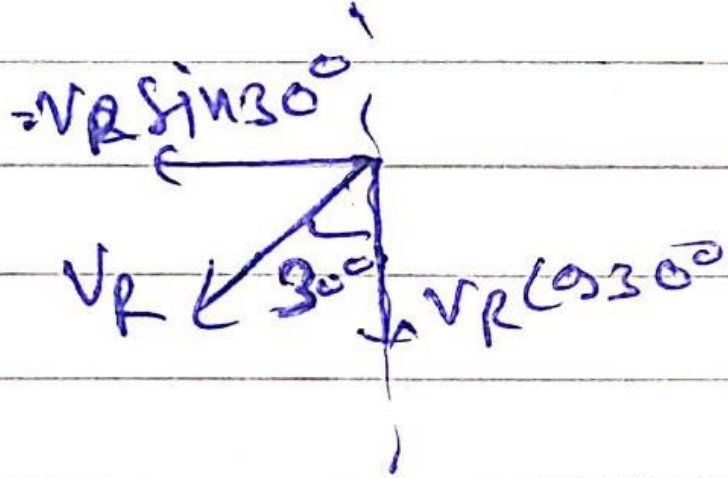 =VR Sin30°
VR 30° VR Cos30°